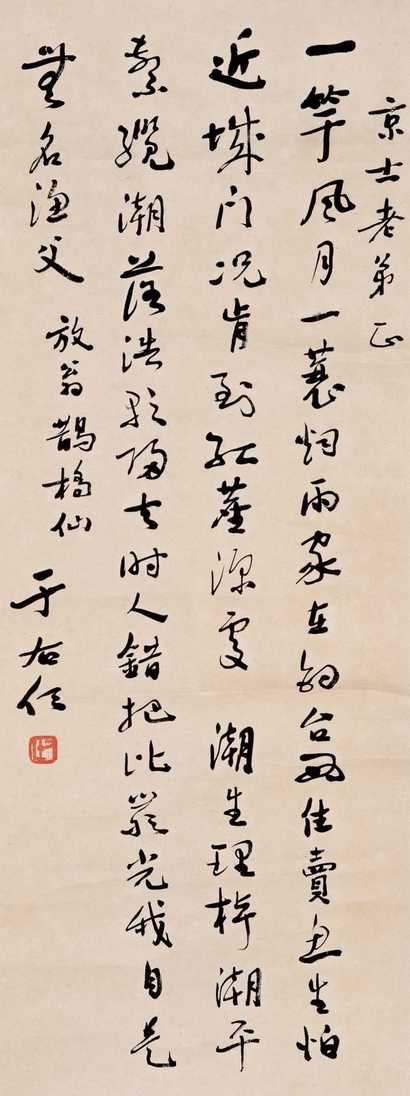 京士老弟正
一竿風月一蓑烟雨家在釣台西住賣魚生怕
近城门况肯到紅塵深處 潮生理棹潮平
繫纜潮落浩歌歸去时人錯把比嚴光我自是
無名漁父
放翁鵲橋仙
于右任